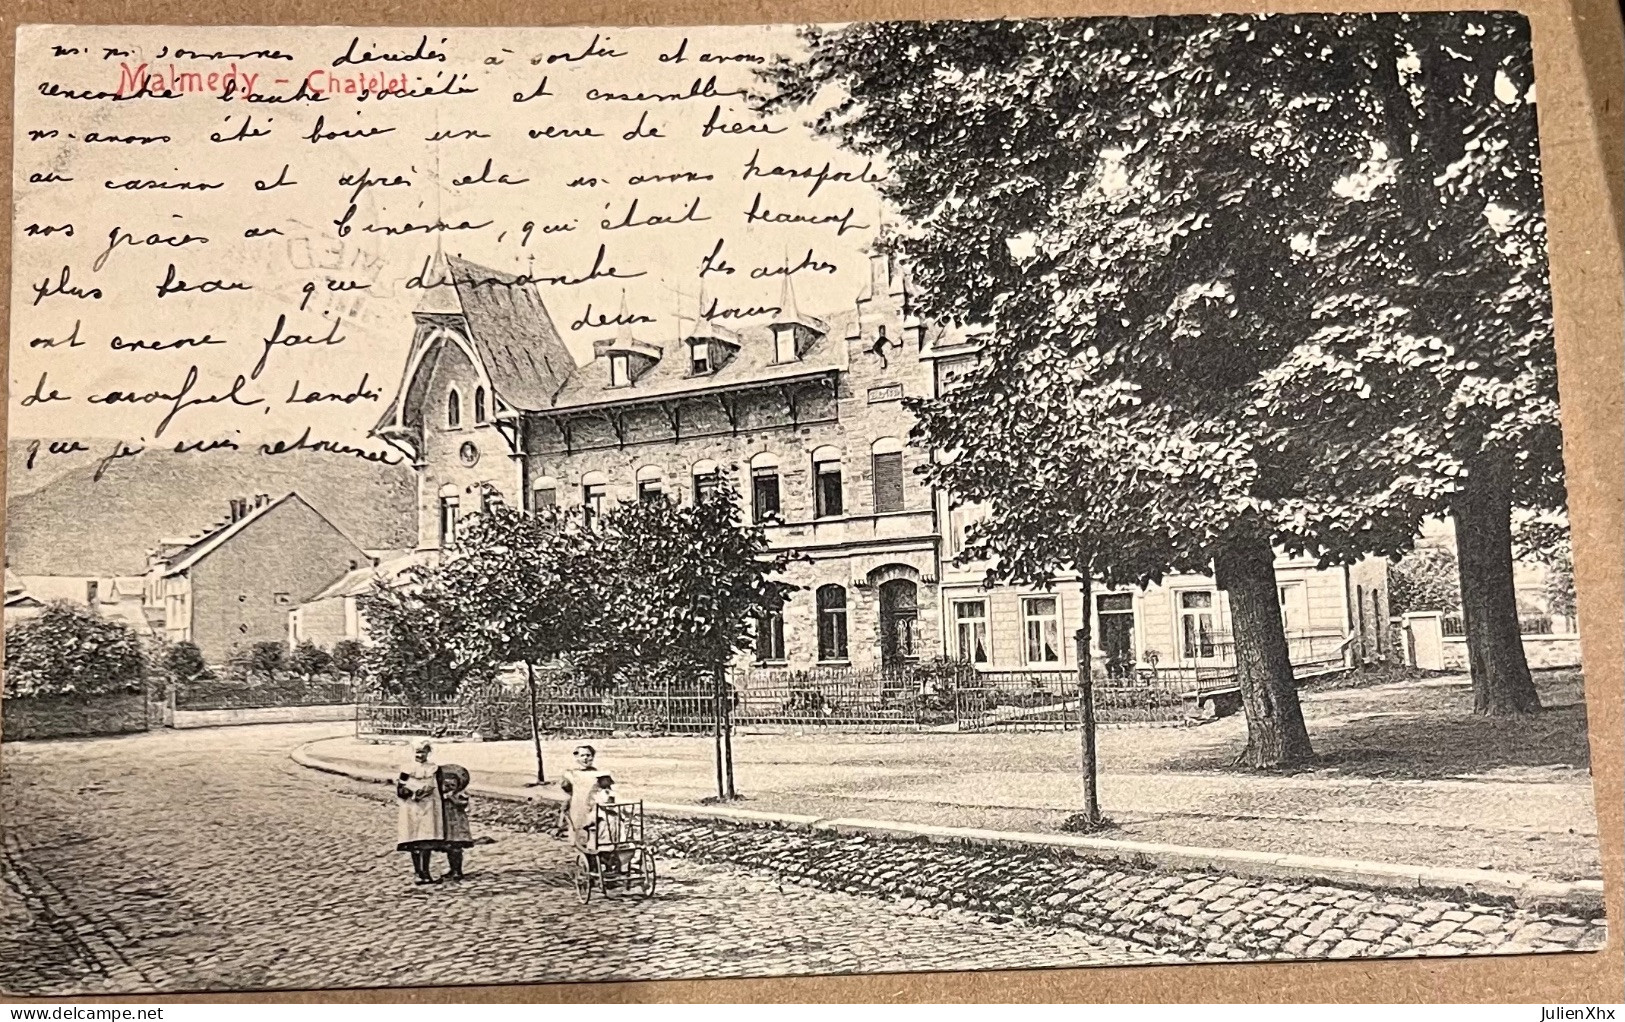 ns. ns. sommes décidés à sortir et avons
Malmedy - Chatelet
rencontré l'autre société et ensemble
ns. avons été boire un verre de bière
au casino et après cela ns. avons transporté
nos grâces au Cinéma, qui était beaucoup
plus beau que dimanche. Les autres
ont encore fait deux tours
de caroussel, tandis
que je suis retournée
JulienXhx